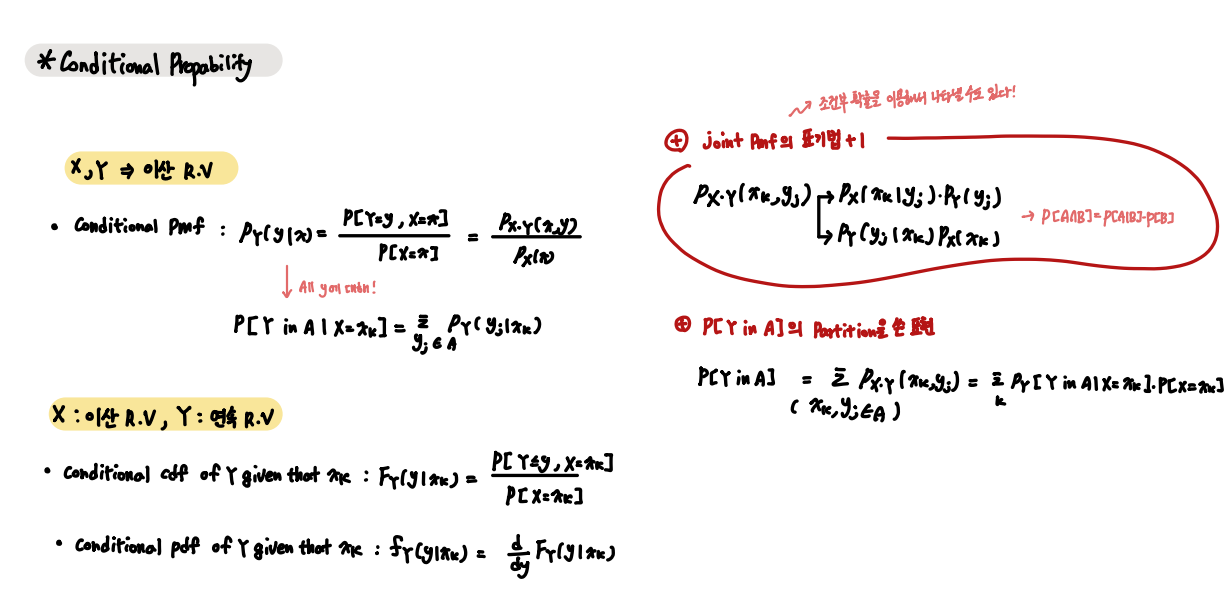 * Conditional Propability
X, Y ⇒ 이산 R.V
• Conditional Pmf : P_Y(y|x) = P[Y=y, X=x] / P[X=x] = P_{X·Y}(x,y) / P_X(x)
↓ All y에 대해!
P[Y in A | X=x_k] = Σ_{y_j ∈ A} P_Y(y_j|x_k)
X : 이산 R.V, Y : 연속 R.V
• Conditional cdf of Y given that x_k : F_Y(y|x_k) = P[Y≤y, X=x_k] / P[X=x_k]
• Conditional pdf of Y given that x_k : f_Y(y|x_k) = d/dy F_Y(y|x_k)
↗ 조건부 확률을 이용해서 나타낼 수도 있다!
⊕ joint Pmf의 표기법 +1
P_{X·Y}(x_k, y_j) → P_X(x_k|y_j)·P_Y(y_j)
↳ P_Y(y_j|x_k) P_X(x_k)
→ P[A∩B] = P[A|B]·P[B]
⊕ P[Y in A]의 Partition을 쓴 표현
P[Y in A] = Σ P_{X·Y}(x_k, y_j) = Σ_k P_Y[Y in A|X=x_k]·P[X=x_k]
(x_k, y_j ∈ A)